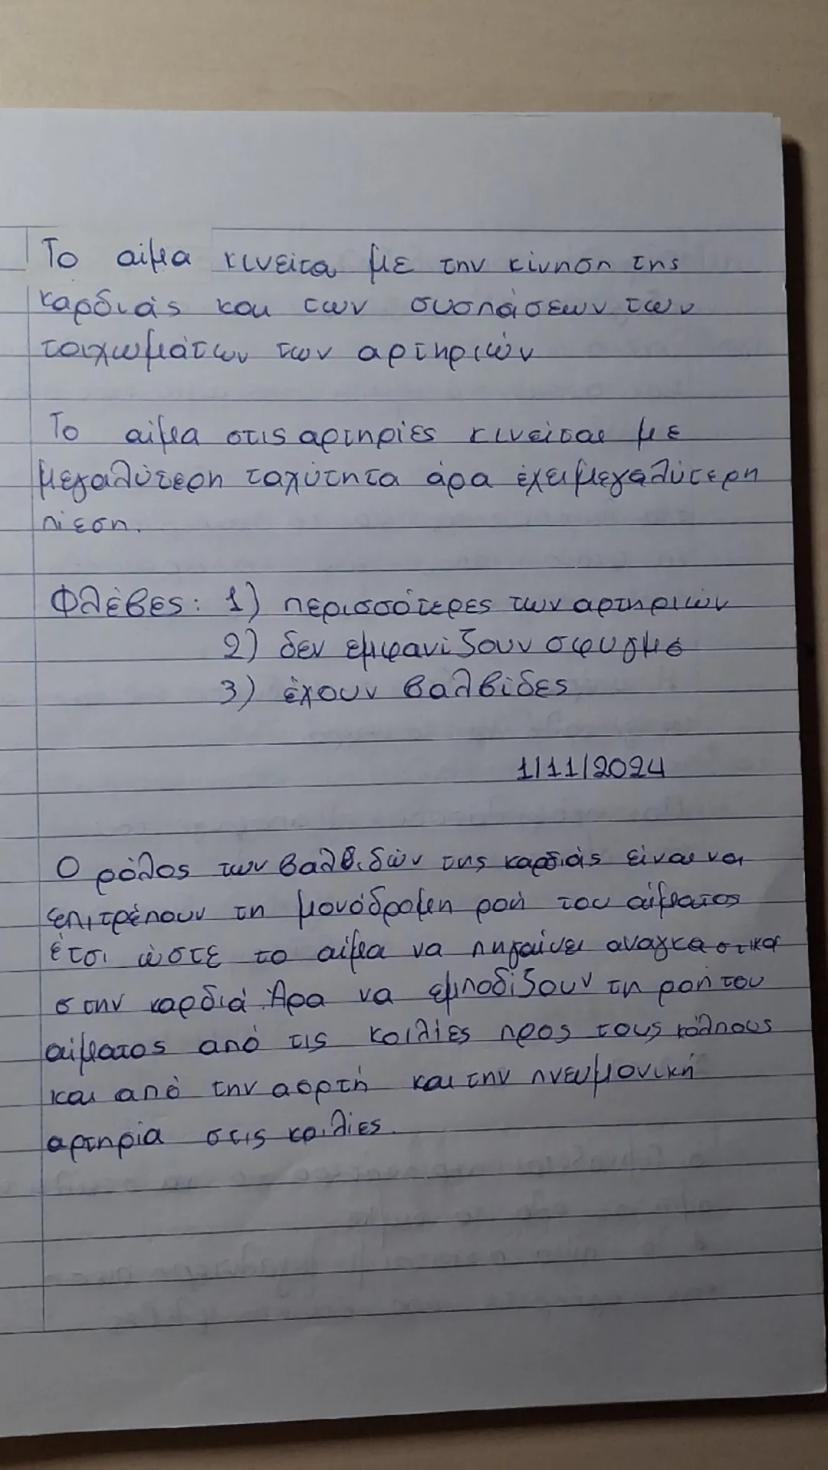 Το αίμα κινείτα με την κίνηση της
καρδιάς και των συσπάσεων των
τοιχωμάτων των αρτηριών
Το αίμα στις αρτηρίες κινείται με
μεγαλύτερη ταχύτητα άρα έχει μεγαλύτερη
πίεση.
Φλέβες: 1) περισσότερες των αρτηριών
2) δεν εμφανίζουν σφυγμό
3) έχουν βαλβίδες
1/11/2024
Ο ρόλος των βαλβιδών της καρδιάς είναι να
επιτρέπουν τη μονόδρομη ροή του αίματος
έτσι ώστε το αίμα να πηγαίνει αναγκαστικά
στην καρδιά. Άρα να εμποδίζουν τη ροή του
αίματος από τις κοιλίες προς τους κόλπους
και από την αορτή και την πνευμονική
αρτηρία στις κοιλίες.